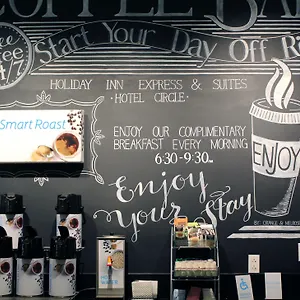 COFFEE BAR
Start Your Day Off Ri
24/7
HOLIDAY INN EXPRESS & SUITES
· HOTEL CIRCLE ·
Smart Roast
ENJOY OUR COMPLIMENTARY
BREAKFAST EVERY MORNING
6:30-9:30am
ENJOY
Enjoy
Your Stay